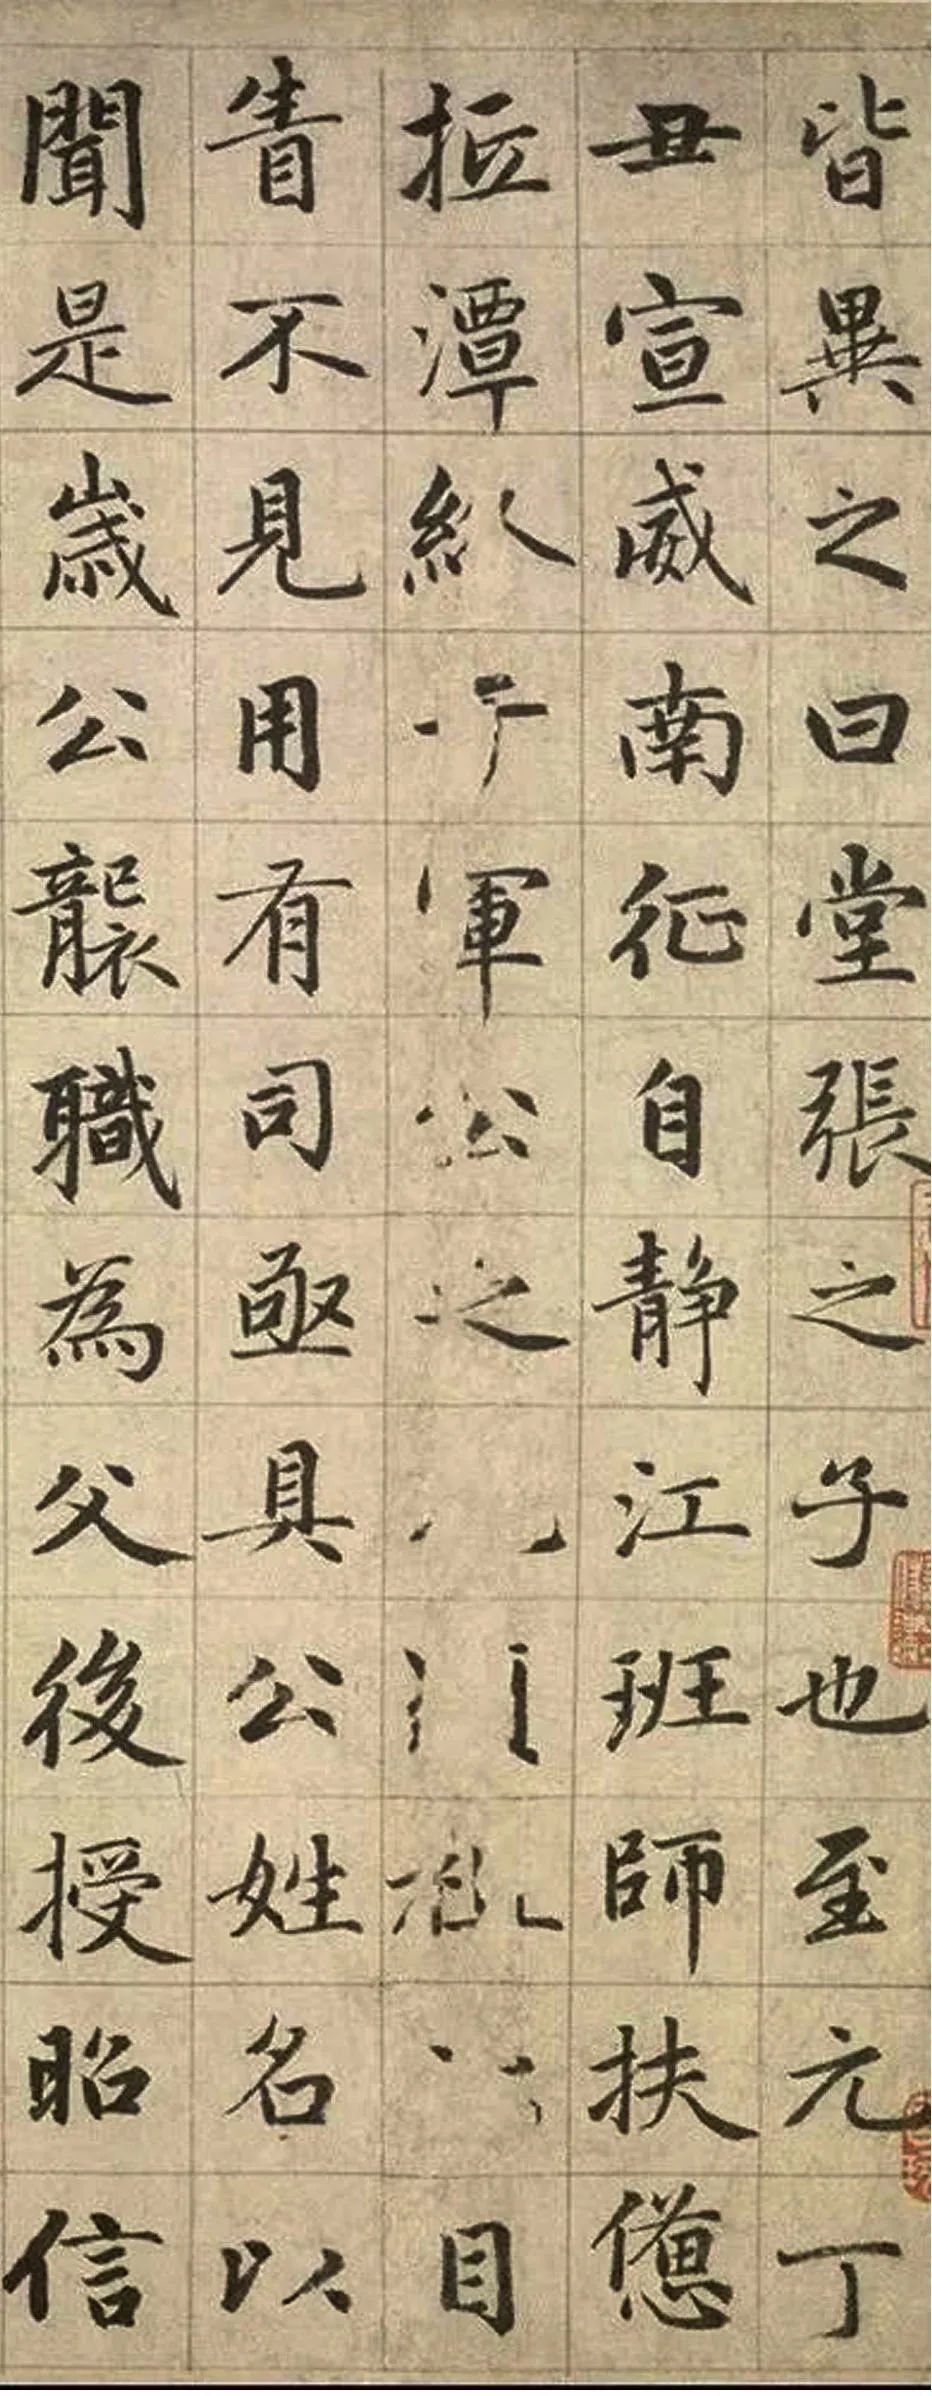 皆異之曰堂張之子也至元丁
丑宣威南征自静江班師扶憊
抵潭終于軍公之目
眚不見用有司亟具公姓名以
聞是歲公襲職為父後授昭信